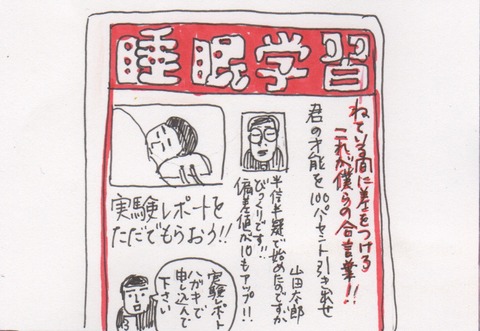 睡眠学習
ねている間に差をつける
これが僕らの合言葉!!
君の才能を100パーセント引き出せ
山田太郎
半信半疑で始めたのですが
びっくりです!!
偏差値が10もアップ!!
実験レポートを
ただでもらおう!!
実験レポート
ハガキで
申し込んで
下さい